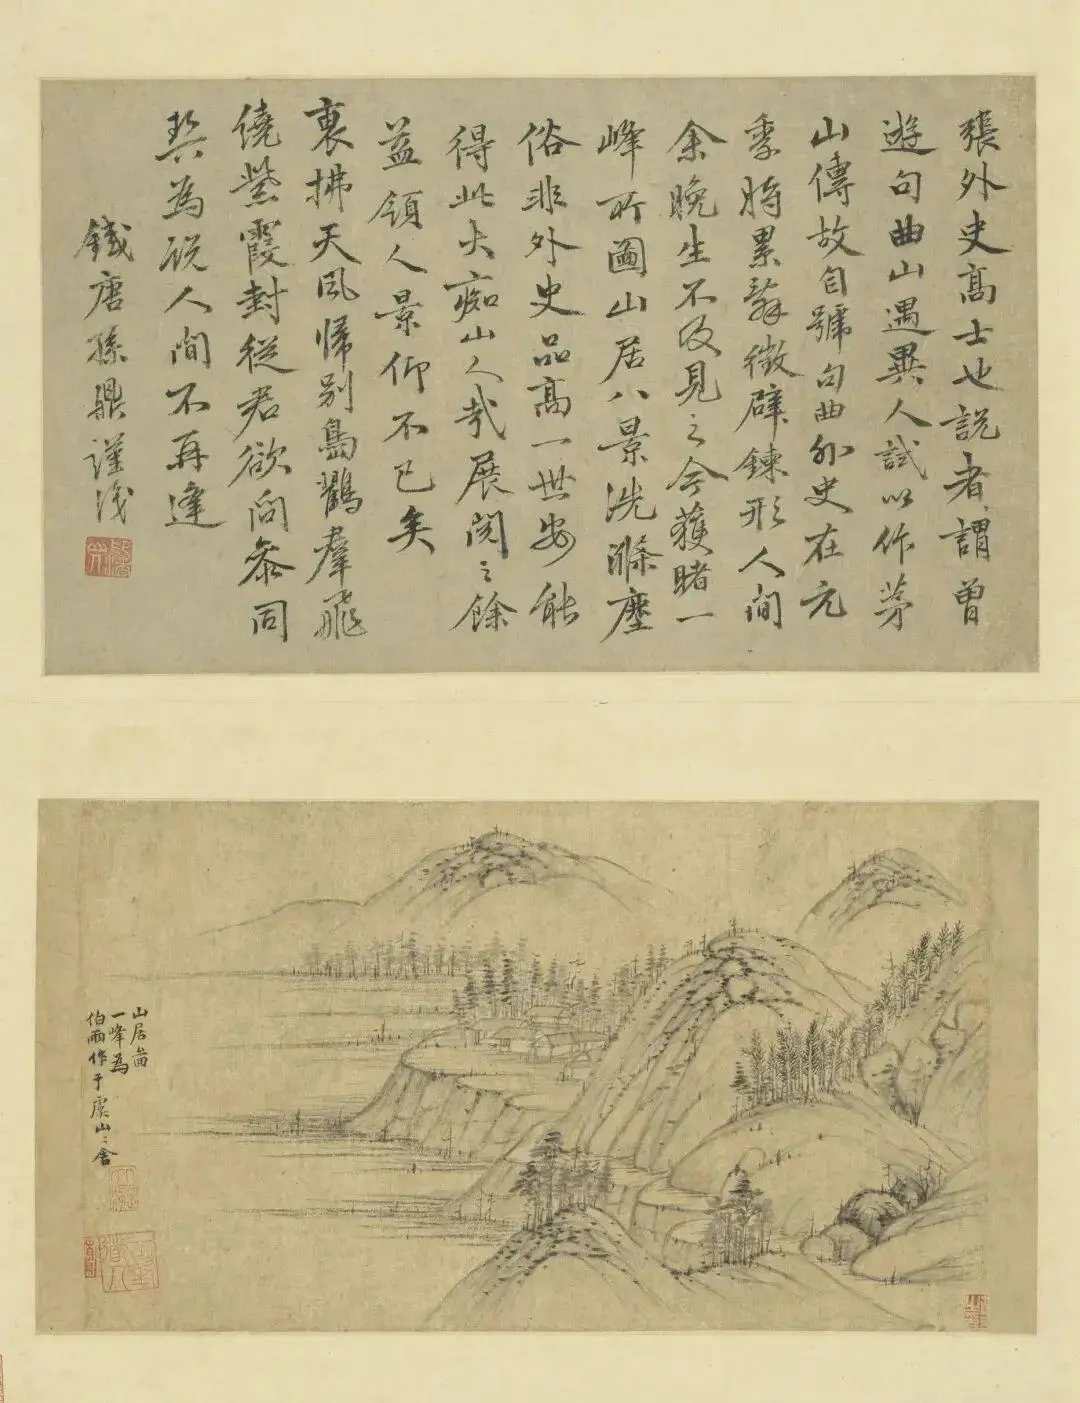 張外史高士也説者謂曽
遊句曲山遇異人試以作茅
山傳故自號句曲外史在元
季時累辭徴辟鍊形人間
余晚生不及見之今獲睹一
峰所圖山居八景洗滌塵
俗非外史品高一世安能
得此大痴山人哉展閱之餘
益領人景仰不已矣
裏拂天風歸別島鸛羣飛
繞紫霞封從君欲问叅同
契為説人間不再逢
鐵唐孫鼎謹識
山居啚
一峰為
伯雨作于虞山之舍